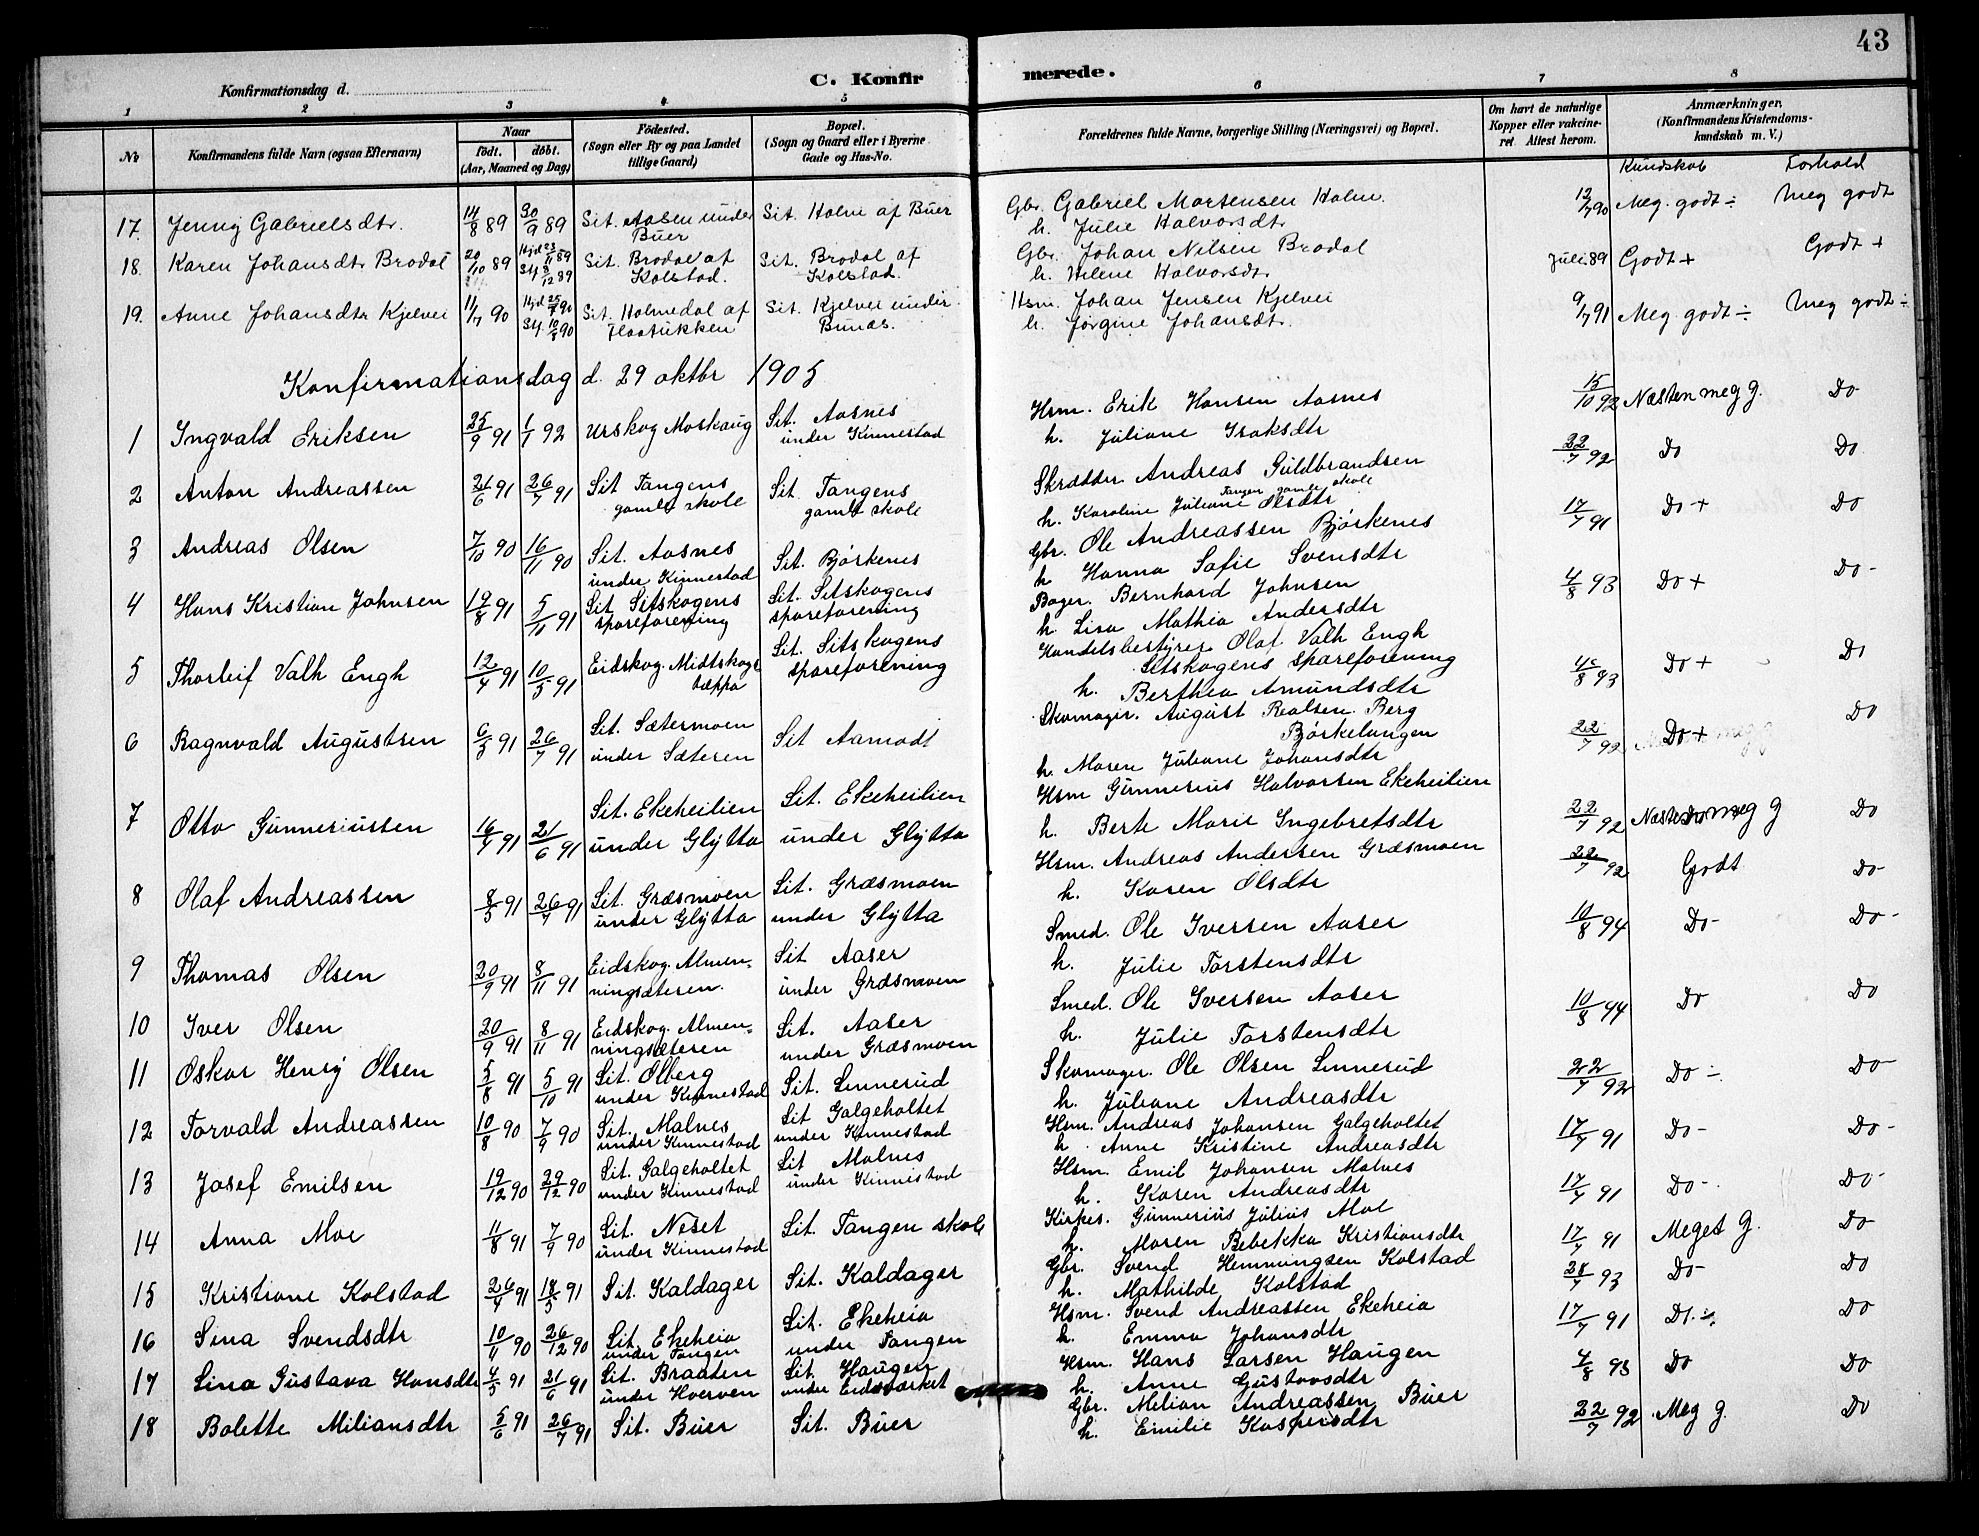 43
C. Konfirmerede.
Konfirmationsdag d.
1 2 3 4 5 6 7 8
No
Konfirmandens fulde Navn (ogsaa Efternavn)
Naar
født. døbt.
(Aar, Maaned og Dag)
Fødested.
(Sogn eller By og paa Landet
tillige Gaard)
Bopæl.
(Sogn og Gaard eller i Byerne
Gade og Hus-No.
Forældrenes fulde Navne, borgerlige Stilling (Næringsvei) og Bopæl.
Om havt de naturlige
Kopper eller vakcine-
ret Attest herom.
Anmærkninger,
(Konfirmandens Kristendoms-
kundskab m. V.)
Kundskab Forhold
17. Jenny Gabrielsdtr. 14/8 89 30/9 89 Sit Aasen under Buer Sit. Holm af Buer Gbr. Gabriel Mortensen Holm. 12/7 90 Meg. godt ÷ Meg godt
h. Julie Halvorsdtr
18. Karen Johansdtr Brodal 20/10 89 Hjd 23/11 89 St. 8/12 89 Sit. Brodal af Kolstad. Sit. Brodal af Kolstad. Gbr. Johan Nilsen Brodal Juli 89 Godt + Godt +
h. Helene Halvorsdtr
19. Anne Johansdtr Kjelvei 11/7 90 Hjd 25/7 90 St. 10/8 90 Sit. Holmedal af Flaatukken Sit. Kjelvei under Bunes. Hsm. Johan Jensen Kjelvei 9/7 91 Meg godt ÷ Meg godt ÷
h. Jørgine Johansdtr.
Konfirmationsdag d. 29 oktbr 1905
1 Ingvald Eriksen 25/9 91 1/1 92 Urskog Moskaug Sit. Aasnes under Kinnestad Hsm. Erik Hansen Aasnes 15/10 92 Næsten meg g. Do
h. Juliane Isaksdtr
2 Anton Andreassen 21/6 91 26/7 91 Sit Tangens gamle skole Sit. Tangens gamle skole Skrædder Andreas Guldbrandsen 22/7 92 Do Do
Tangen gamle skole
h. Karoline Juliane Olsdtr
3 Andreas Olsen 7/10 90 16/11 90 Sit. Aasnes under Kinnestad Sit. Bjørkenes Gbr. Ole Andreassen Bjørkenes 17/7 91 Do + Do
h Hanna Sofie Svensdtr
4 Hans Kristian Johnsen 19/8 91 5/11 91 Sit Sitskogens spareforening Sit. Sitskogens spareforening Bager. Bernhard Johnsen 4/8 93 Do + Do
h. Lisa Mathea Andersdtr
5 Thorleif Valh Engh 12/4 91 10/5 91 Eidskog. Midtskogstæppa Sit. Sitskogens spareforening Handelsbestyrer Olaf Valh Engh 4/8 93 Do + Do
Sitskogens spareforening
h. Berthea Amundsdtr
6 Ragnvald Augustsen 6/3 91 26/7 91 Sit. Sætermoen under Sæteren Sit Aamodt Skomager. August Realsen Berg 22/7 92 Do + Do
Bjørkelangen
h. Maren Juliane Johansdtr
7 Otto Gunneriussen 16/4 91 21/6 91 Sit. Ekeheilien under Glytta Sit. Ekeheilien under Glytta Hsm Gunnerius Halvorsen Ekeheilien 22/7 92 Næsten meg g Do
h. Berte Marie Ingebretsdtr
8 Olaf Andreassen 8/5 91 26/7 91 Sit. Græsmoen under Glytta Sit. Græsmoen under Glytta Hsm. Andreas Andersen Græsmoen 22/7 92 Godt Do
h. Karen Olsdtr
9 Thomas Olsen 20/9 91 8/11 91 Eidskog. Almenningsæteren. Sit Aaser under Græsmoen Smed. Ole Iversen Aaser 10/8 94 Do Do
h. Julie Torstensdtr
10 Iver Olsen 20/9 91 8/11 91 Eidskog. Almenningsæteren Sit. Aaser under Græsmoen Smed. Ole Iversen Aaser 10/8 94 Do Do
h. Julie Torstensdtr
11 Oskar Henry Olsen 5/8 91 5/10 91 Sit. Olberg under Kinnestad Sit. Linnerud Skomager. Ole Olsen Linnerud 22/7 92 Do ÷ Do
h. Juliane Andreasdtr
12 Torvald Andreassen 10/8 90 7/9 90 Sit. Malnes under Kinnestad Sit Galgeholtet under Kinnestad Hsm. Andreas Johansen Galgeholtet 17/7 91 Do Do
h. Anne Kristine Andreasdtr
13 Josef Emilsen 19/12 90 29/12 90 Sit. Galgeholtet under Kinnestad Sit Malnes under Kinnestad Hsm. Emil Johansen Malnes 17/7 91 Do Do
h. Karen Andreasdtr
14 Anna Moe 11/8 91 7/9 90 Sit. Neset under Kinnestad Sit. Tangen skole Kirkes. Gunnerius Julius Moe 17/7 91 Meget g. Do
h. Maren Rebekka Kristiansdtr
15 Kristiane Kolstad 26/4 91 18/5 91 Sit. Kaldager Sit. Kaldager Gbr. Svend Hemmingsen Kolstad 28/7 93 Do Do
h. Mathilde Kolstad
16 Lina Svendsdtr 10/11 90 26/12 90 Sit. Ekeheia under Tangen Sit. Ekeheia under Tangen Hsm. Svend Andreassen Ekeheia 17/7 91 Do. ÷ Do
h. Emma Johansdtr
17 Lina Gustava Hansdtr 4/5 91 21/6 91 Sit. Braaten under Hverven Sit. Haugen under Eidsværket Hsm. Hans Larsen Haugen 4/8 93 Do Do
h. Anne Gustavsdtr
18 Bolette Miliansdtr 5/6 91 26/7 91 Sit. Buer Sit. Buer Gbr. Milian Andreassen Buer 22/7 92 Meg g. Do
h. Emilie Kaspersdtr